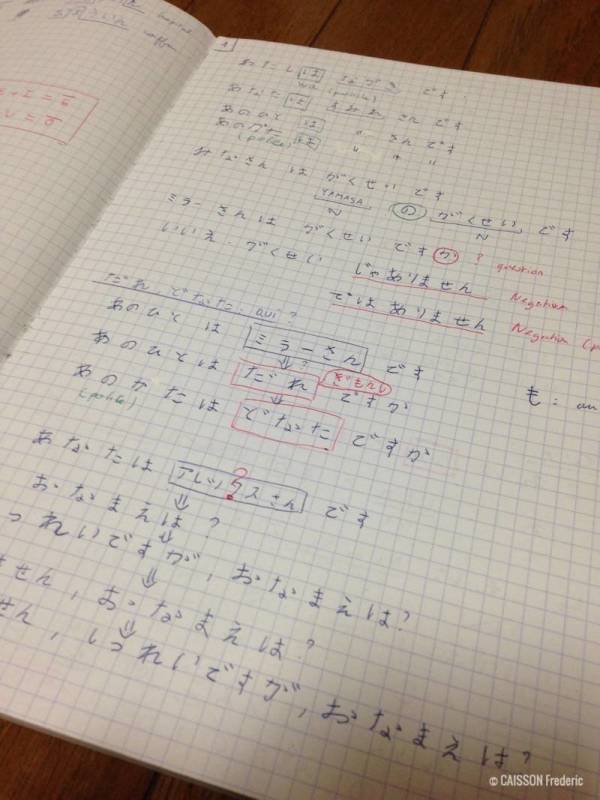 1
わたし は です
wa (polite)
あなた は さん です
あのひと は 〃 さん です
あのかた は 〃 〃 〃
(polite)
ミラーさん は がくせい です
YAMASA の がくせい です
N N
ミラーさんは がくせい ですか ? question
いいえ・がくせい じゃありません Negation
ではありません Negation
だれ, どなた : qui ?
あのひと は ミラーさん です
あのひとは だれ ですか
あのかたは どなた ですか
(polite)
も : au
あなたは さん です
おなまえは ?
つれいですが, おなまえは?
ません, おなまえは?
せん, しつれいですが, おなまえは?
© CAISSON Frederic